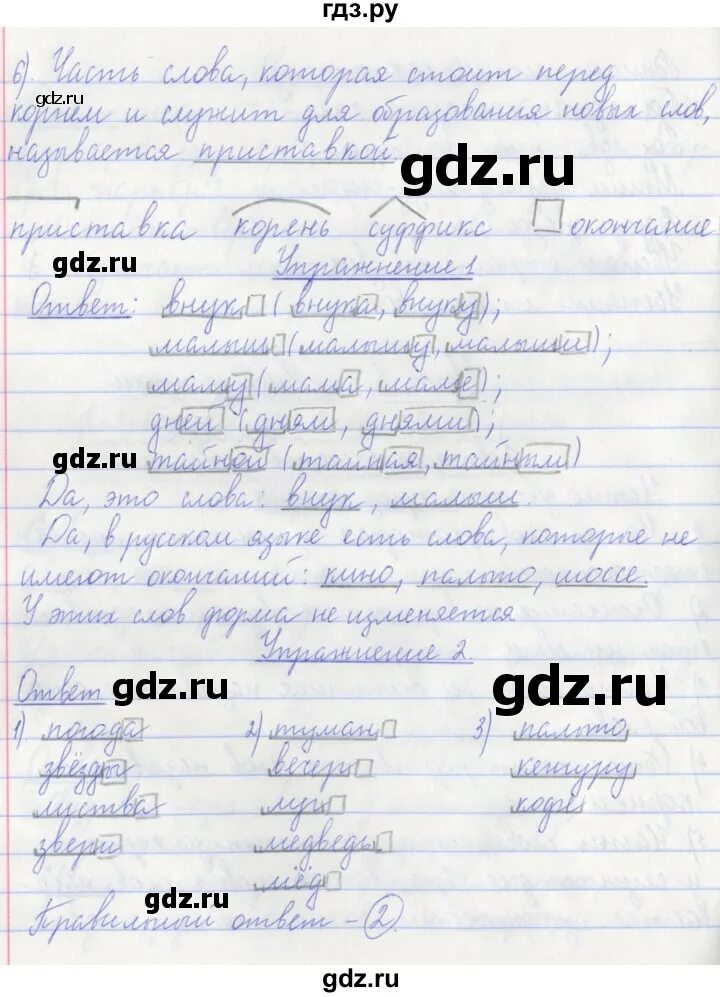 гдз.ру
6). Часть слова, которая стоит перед
gdz.ru
корнем и служит для образования новых слов,
называется приставкой.
gdz.ru
приставка корень суффикс окончание
gdz.ru
Упражнение 1
Ответ: внук (внука, внуку);
малыш (малышу, малыши);
маму (мама, маме);
дней (дням, днями);
gdz.ru
тайной (тайная, тайным)
Да, это слова: внук, малыш.
Да, в русском языке есть слова, которые не
имеют окончаний: кино, пальто, шоссе.
У этих слов форма не изменяется
Упражнение 2.
Ответ
gdz.ru
gdz.ru
1) погода 2) туман 3) пальто
звёзды вечер кенгуру
листва луг кофе
звери медведь
мёд
gdz.ru
Правильный ответ – 2.
gdz.ru
gdz.ru